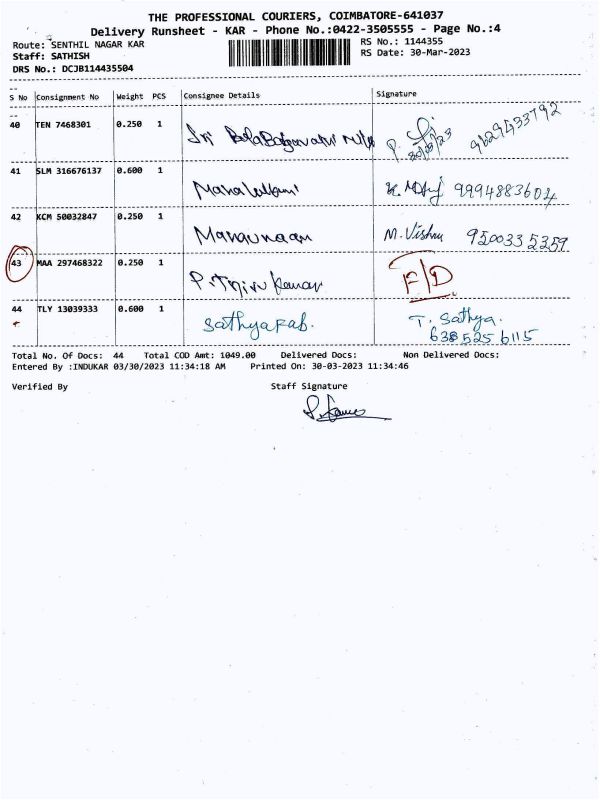 THE PROFESSIONAL COURIERS, COIMBATORE-641037
Delivery Runsheet - KAR - Phone No.:0422-3505555 - Page No.:4
Route: SENTHIL NAGAR KAR
RS No.: 1144355
Staff: SATHISH
RS Date: 30-Mar-2023
DRS No.: DCJB114435504
S No Consignment No Weight PCS Consignee Details Signature
40 TEN 7468301 0.250 1 Sri P. 30/03/23 9629433792
41 SLM 316676137 0.600 1 9994883604
42 KCM 50032847 0.250 1 M. Vishnu 9500335359
43 MAA 297468322 0.250 1 Kumar F/D
44 TLY 13039333 0.600 1 Sathya Fab. T. Sathya.
6385256115
Total No. Of Docs: 44 Total COD Amt: 1049.00 Delivered Docs: Non Delivered Docs:
Entered By :INDUKAR 03/30/2023 11:34:18 AM Printed On: 30-03-2023 11:34:46
Verified By Staff Signature